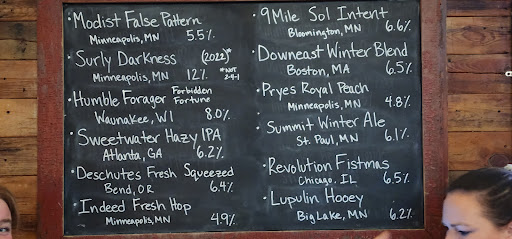 • Modist False Pattern
Minneapolis, MN 5.5%
• Surly Darkness (2022)*
Minneapolis, MN 12% *NOT 2-4-1
• Humble Forager Forbidden Fortune
Waunakee, WI 8.0%
• Sweetwater Hazy IPA
Atlanta, GA 6.2%
• Deschutes Fresh Squeezed
Bend, OR 6.4%
• Indeed Fresh Hop
Minneapolis, MN 4.9%
• 9Mile Sol Intent
Bloomington, MN 6.6%
• Downeast Winter Blend
Boston, MA 6.5%
• Pryes Royal Peach
Minneapolis, MN 4.8%
• Summit Winter Ale
St. Paul, MN 6.1%
• Revolution Fistmas
Chicago, IL 6.5%
• Lupulin Hooey
Big Lake, MN 6.2%